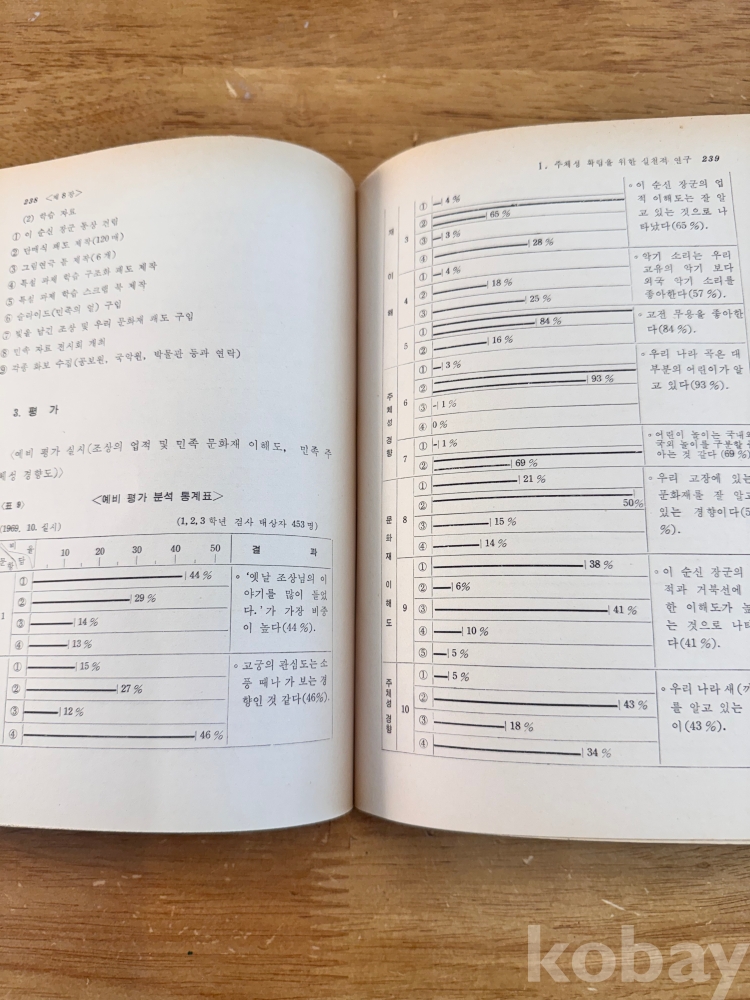 238 <제 8 장>
(2) 학습 자료
① 이 순신 장군 동상 건립
② 반예식 괘도 제작(120 매)
③ 그림연극 틀 제작(6 개)
④ 특설 과제 학습 구조화 괘도 제작
⑤ 특설 과제 학습 스크랩 북 제작
⑥ 슬라이드(민족의 얼) 구입
⑦ 빛을 남긴 조상 및 우리 문화재 괘도 구입
⑧ 민속 자료 전시회 개최
⑨ 각종 화보 수집(공보원, 국악원, 박물관 등과 연락)
3. 평 가
<예비 평가 실시(조상의 업적 및 민족 문화재 이해도, 민족 주
체성 경향도)>
<표 9> <예비 평가 분석 통계표>
(1969. 10. 실시) (1, 2, 3 학년 검사 대상자 453 명)
비 율 10 20 30 40 50 결 과
문항 답
1
① 44 %
② 29 %
③ 14 %
④ 13 %
∘ '옛날 조상님의 이
야기를 많이 들었
다.'가 가장 비중
이 높다(44 %).
① 15 %
② 27 %
③ 12 %
④ 46 %
∘ 고궁의 관심도는 소
풍 때나 가 보는 경
향인 것 같다(46%).
1. 주체성 확립을 위한 실천적 연구 239
재 이 해
3
① 4 %
② 65 %
③ 3 %
④ 28 %
∘ 이 순신 장군의 업
적 이해도는 잘 알
고 있는 것으로 나
타났다(65 %).
4
① 4 %
② 18 %
③ 25 %
∘ 악기 소리는 우리
고유의 악기 보다
외국 악기 소리를
좋아한다(57 %).
5
① 84 %
② 16 %
∘ 고전 무용을 좋아한
다(84 %).
주체성 경향
6
① 3 %
② 93 %
③ 1 %
④ 0 %
∘ 우리 나라 곡은 대
부분의 어린이가 알
고 있다(93 %).
7
① 1 %
② 69 %
∘ 어린이 놀이는 국내와
국외 놀이를 구분할
아는 것 같다(69 %)
문 화 재 이 해 도
8
① 21 %
② 50%
③ 15 %
④ 14 %
∘ 우리 고장에 있는
문화재를 잘 알고
있는 경향이다(5
%).
9
① 38 %
② 6%
③ 41 %
④ 10 %
⑤ 5 %
∘ 이 순신 장군의
적과 거북선에
한 이해도가 높
는 것으로 나타
다(41 %).
주체성 경향
10
① 5 %
② 43 %
③ 18 %
④ 34 %
∘ 우리 나라 새(까
를 알고 있는
이(43 %).
kobay